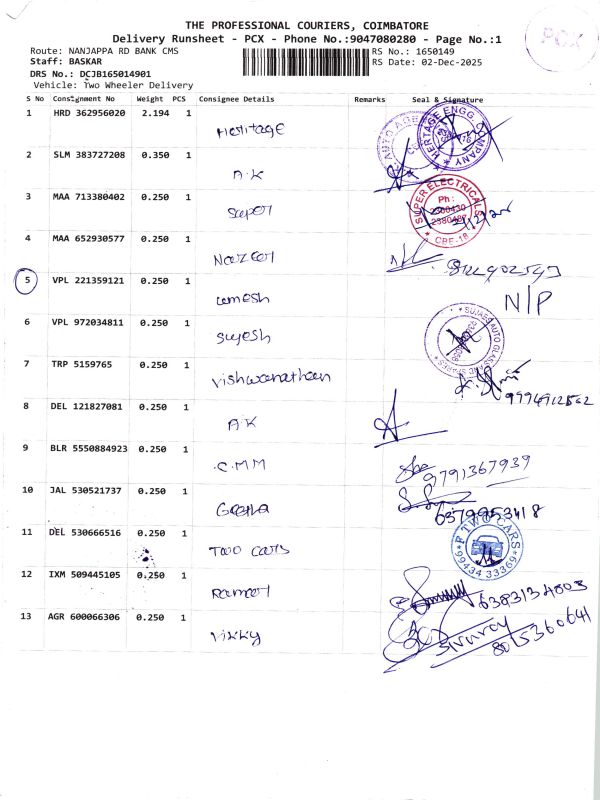 THE PROFESSIONAL COURIERS, COIMBATORE
PCX
Delivery Runsheet - PCX - Phone No.:9047080280 - Page No.:1
Route: NANJAPPA RD BANK CMS
RS No.: 1650149
Staff: BASKAR
RS Date: 02-Dec-2025
DRS No.: DCJB165014901
Vehicle: Two Wheeler Delivery
S No Consignment No Weight PCS Consignee Details Remarks Seal & Signature
1 HRD 362956020 2.194 1 Heritage
HERTAGE ENGG. COMPANY
2 SLM 383727208 0.350 1 A.K
AUTO AGE
3 MAA 713380402 0.250 1 super
SUPER ELECTRICALS
Ph:
CBE-18
4 MAA 652930577 0.250 1 Nazeer
5 VPL 221359121 0.250 1 umesh
N/P
6 VPL 972034811 0.250 1 sujesh
7 TRP 5159765 0.250 1 vishwanathan
8 DEL 121827081 0.250 1 A.K
9 BLR 5550884923 0.250 1 C.M.M
9791367939
10 JAL 530521737 0.250 1 Geetha
6379953418
11 DEL 530666516 0.250 1 Two cars
F TWO CARS
99434 33369
12 IXM 509445105 0.250 1 Rameel
6383134803
13 AGR 600066306 0.250 1 Vikky
8015360641